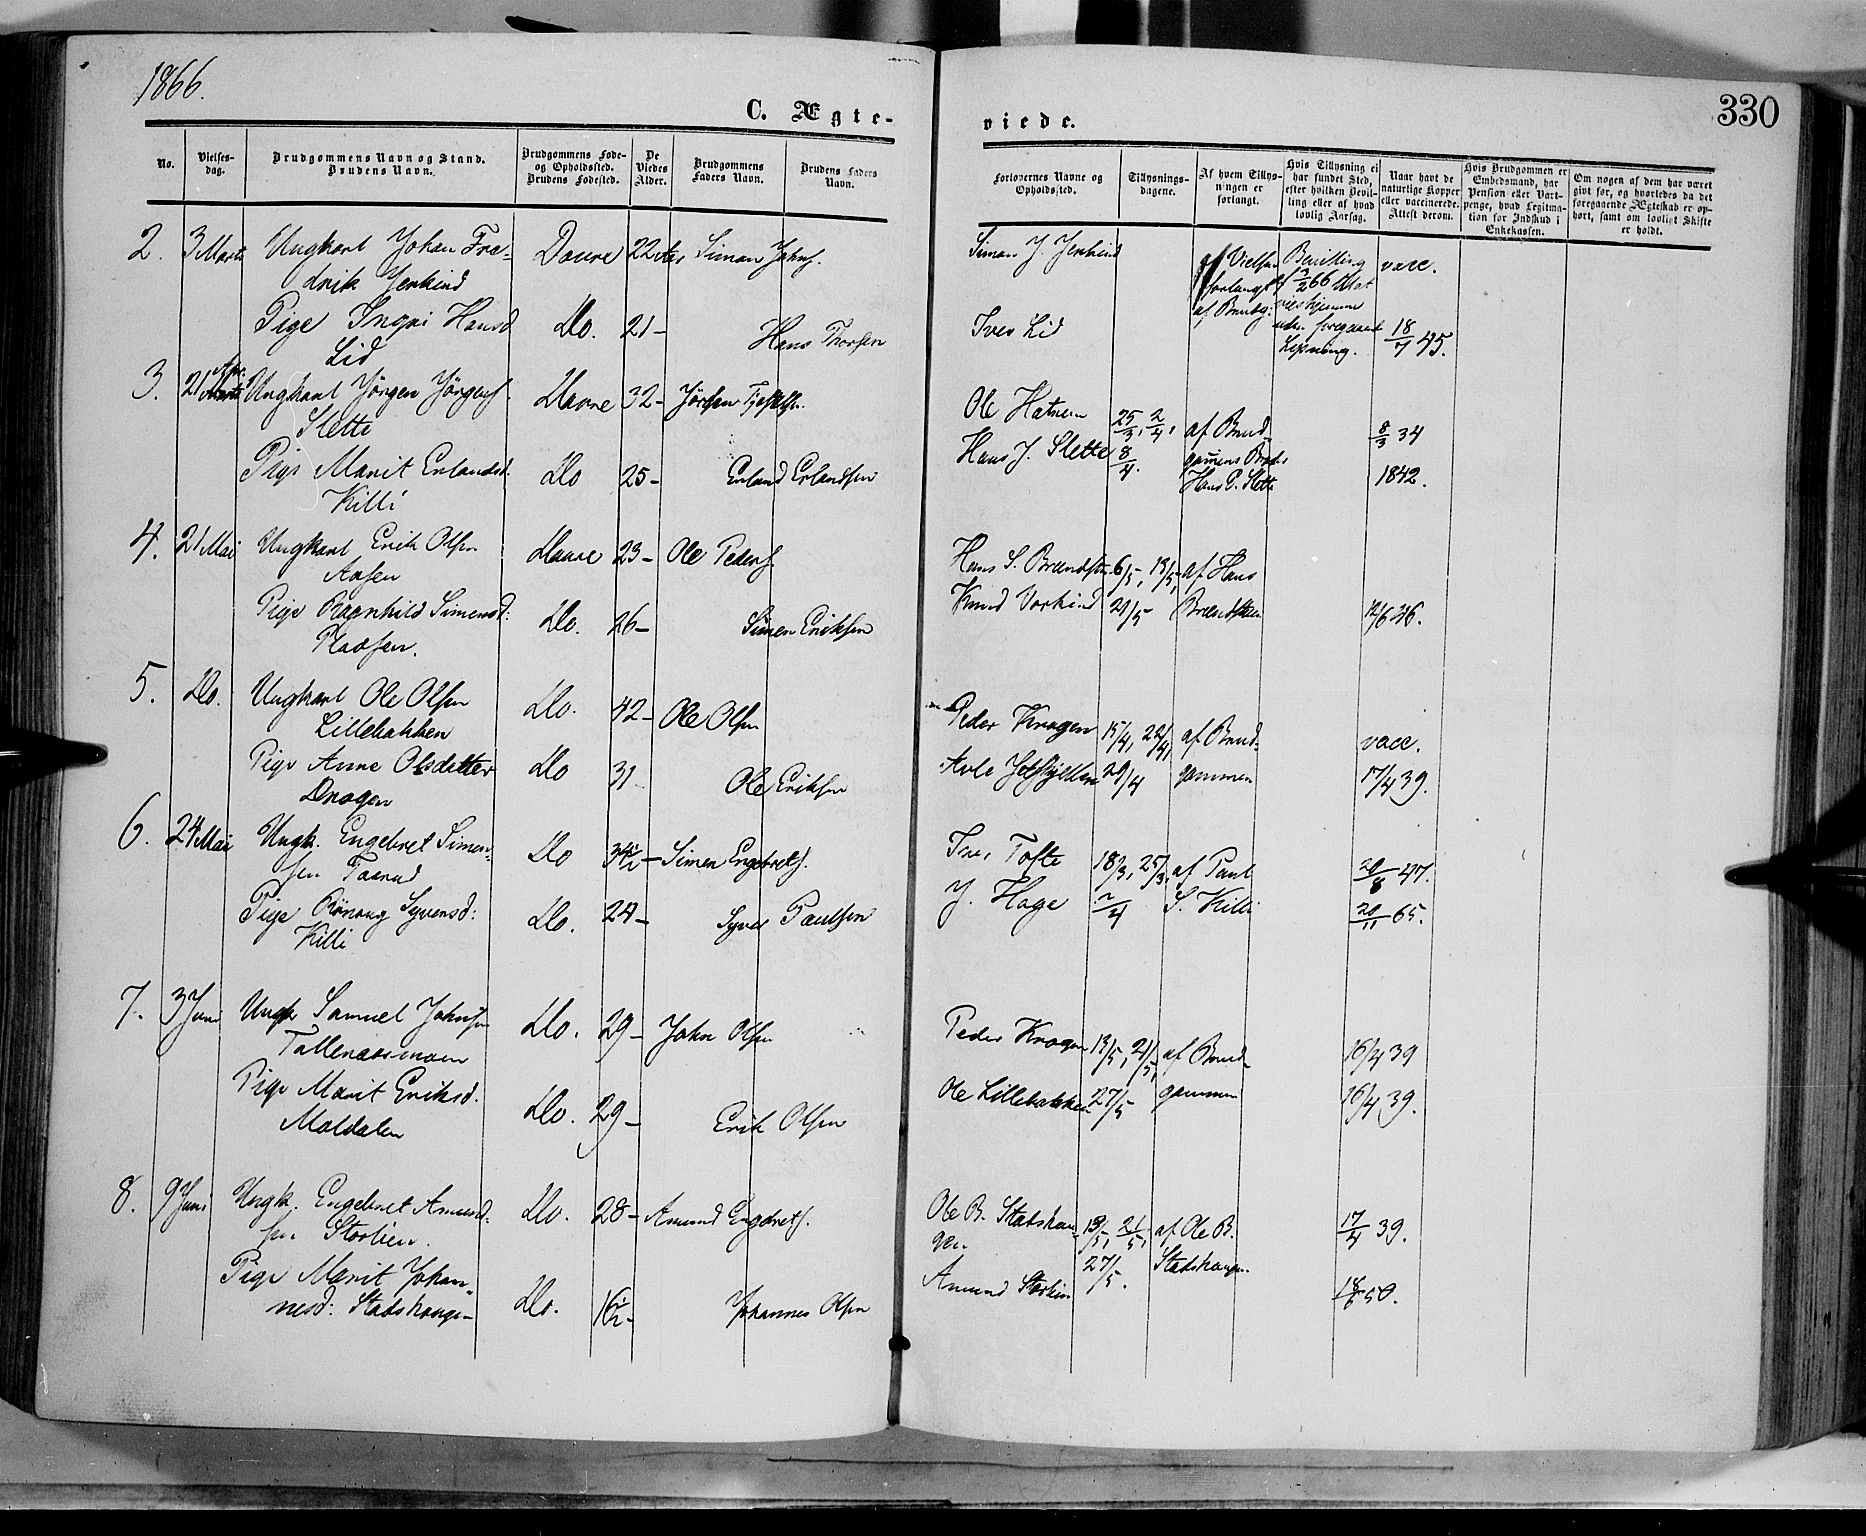 1866.
330
C. Ægte-
viede.
No.
Vielses-
dag.
Brudgommens Navn og Stand.
Brudens Navn.
Brudgommens Føde-
og Opholdssted.
Brudens Fødested.
De
Viedes
Alder.
Brudgommens
Faders Navn.
Brudens Faders
Navn.
Forlovernes Navne og
Opholdssted.
Tillysnings-
dagene.
Af hvem Tillys-
ningen er
forlangt.
Hvis Tillysning ei
har fundet Sted,
efter hvilken Bevil-
ling eller af hvad
lovlig Aarsag.
Naar havt de
naturlige Kopper
eller vaccinerede.
Attest derom.
Hvis Brudgommen er
Embedsmand, har
Pension eller Vart-
penge, hvad Legitima-
tion for Indskud i
Enkekassen.
Om nogen af dem har været
gift før, og hvorledes da det
foregaaende Ægteskab er op-
hørt, samt om lovligt Skifte
er holdt.
2. 3 Marts Ungkarl Johan Fre- Dovre 22 Aar Simon Johns. Simon J. Jenkind af Vielsen Bevilling vacc.
drik Jenkind forlangt af 3/2 66
af Brudg:
Pige Ingri Hansd. Do. 21 - Hans Thorsen Iver Lid 18/7 45.
Lid
3. 21 Apr. Ungkarl Jörgen Jörgens. Dovre 32 - Ole Hatrem 25/3, 2/4, af Brud- 8/3 34
Slette Hans J. Slette 8/4. gommens Broder
Pige Marit Erlandsd. Do 25 - Erland Erlandsen Hans J. Slette 1842.
Killi
4. 21 Mai Ungkarl Erik Olsen Dovre 23 - Ole Peders. 6/5, 13/5, af Hans
Aasen
Pige Ragnhild Simensd: Do. 26 - Simen Eriksen Knud Vorkind 21/5
Plassen.
5. Do. Ungkarl Ole Olsen Do. 42 - Ole Olsen Peder Kragen 15/4, 22/4, af Brud- vacc.
Lillebakken
Pige Anne Olsdatter Do 31 Ole Eriksen 29/4 gommen 17/4 39.
6. 24 Mai Ungk. Engebret Simen- Do 34½ - Simen Engebrets. Iver Tofte 18/3, 25/3, af Paul 20/8 47.
sen
Pige Rönnoug Syversd: Do. 24 - Syver Paulsen J. Hage 2/4 S. Killi 20/11 65.
Killi
7. 3 Juni Ungk. Samuel Johnsen Do. 29 - John Olsen Peder Kragen 13/5, 21/5, af Brud- 16/4 39
Pige Marit Eriksd. Do. 29 - Erik Olsen Ole Lillebakken 27/5 gommen 16/4 39.
Moldalen
8. 9 Juni Ungk. Engebret Amund- Do. 28 - Amund Engebrets. Ole B. Stadshau- 13/5, 21/5, af Ole B. 17/4 39.
sen Storlien. gen 27/5. Stadshaugen.
Pige Marit Johan- Do. 16½ - Johannes Olsen Amund Storlien 18/6 50.
nesd: Stadshaugen